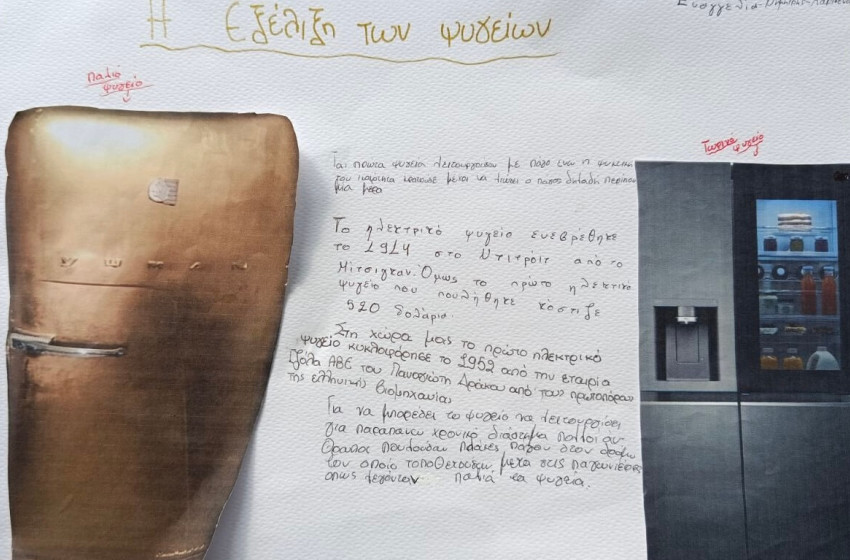 Η Εξέλιξη των ψυγείων
παλιό
ψυγείο
Τωρινα ψυγείο
Τα πρωτα ψυγεια λειτουργουσαν με παγο ενω η
του κρατουσε μεχρι να λιωσει ο παγος δηλαδη περιπου
μια μερα
Το ηλεκτρικό ψυγείο ευεβρέθηκε
το 1914 στο Ντιτρόιτ από το
Μίτσιγκαν. Όμως το πρώτο ηλεκτρικο
ψυγείο που πουλήθηκε κόστιζε
920 δολάρια.
Στη χώρα μας το πρώτο ηλεκτρικό
ψυγείο κυκλοφόρησε το 1952 από την εταιρία
Ιζόλα ΑΒΕ του Παναγιώτη Δράκου από τους πρωτοπόρους
της ελληνικής βιομηχανίας
Για να μπορέσει το ψυγείο να λειτουργήσει
για παραπανω χρονικό διάστημα πολλοί αν
θρωποι πουλούσαν πλάκες πάγου στον δρόμο
τον οποίο τοποθετούσαν μετα στις παγωνιέρες
οπως λεγόνταν παλιά τα ψυγεία.